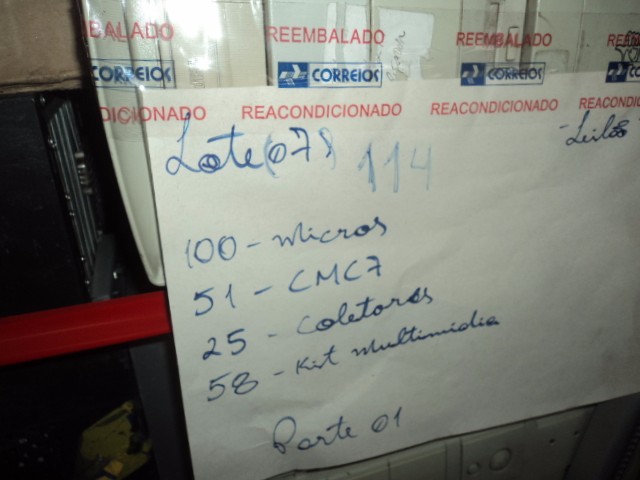 BALADO REEMBALADO REEMBALADO REEMBA
CORREIOS CORREIOS CORREIOS
DICIONADO REACONDICIONADO REACONDICIONADO REACONDICI
Lote (07) 114
100 - Micros
51 - CMC7
25 - Coletores
58 - Kit Multimidia
Parte 01